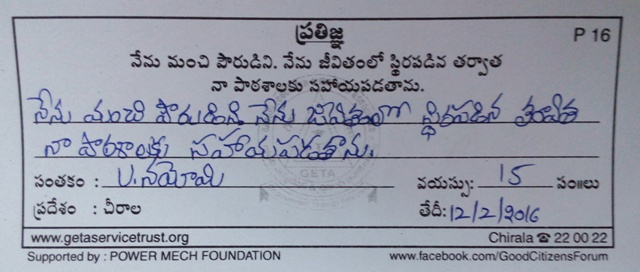 ప్రతిజ్ఞ
P 16
నేను మంచి పౌరుడిని. నేను జీవితంలో స్థిరపడిన తర్వాత
నా పాఠశాలకు సహాయపడతాను.
నేను మంచి పౌరుడిని నేను జీవితంలో స్థిరపడిన తర్వాత
నా పాఠశాలకు సహాయపడతాను.
సంతకం : U.నయోమి వయస్సు: 15 సం॥లు
ప్రదేశం : చీరాల తేదీ: 12/2/2016
www.getaservicetrust.org Chirala ☎ 22 00 22
Supported by : POWER MECH FOUNDATION www.facebook.com/GoodCitizensForum
GETA